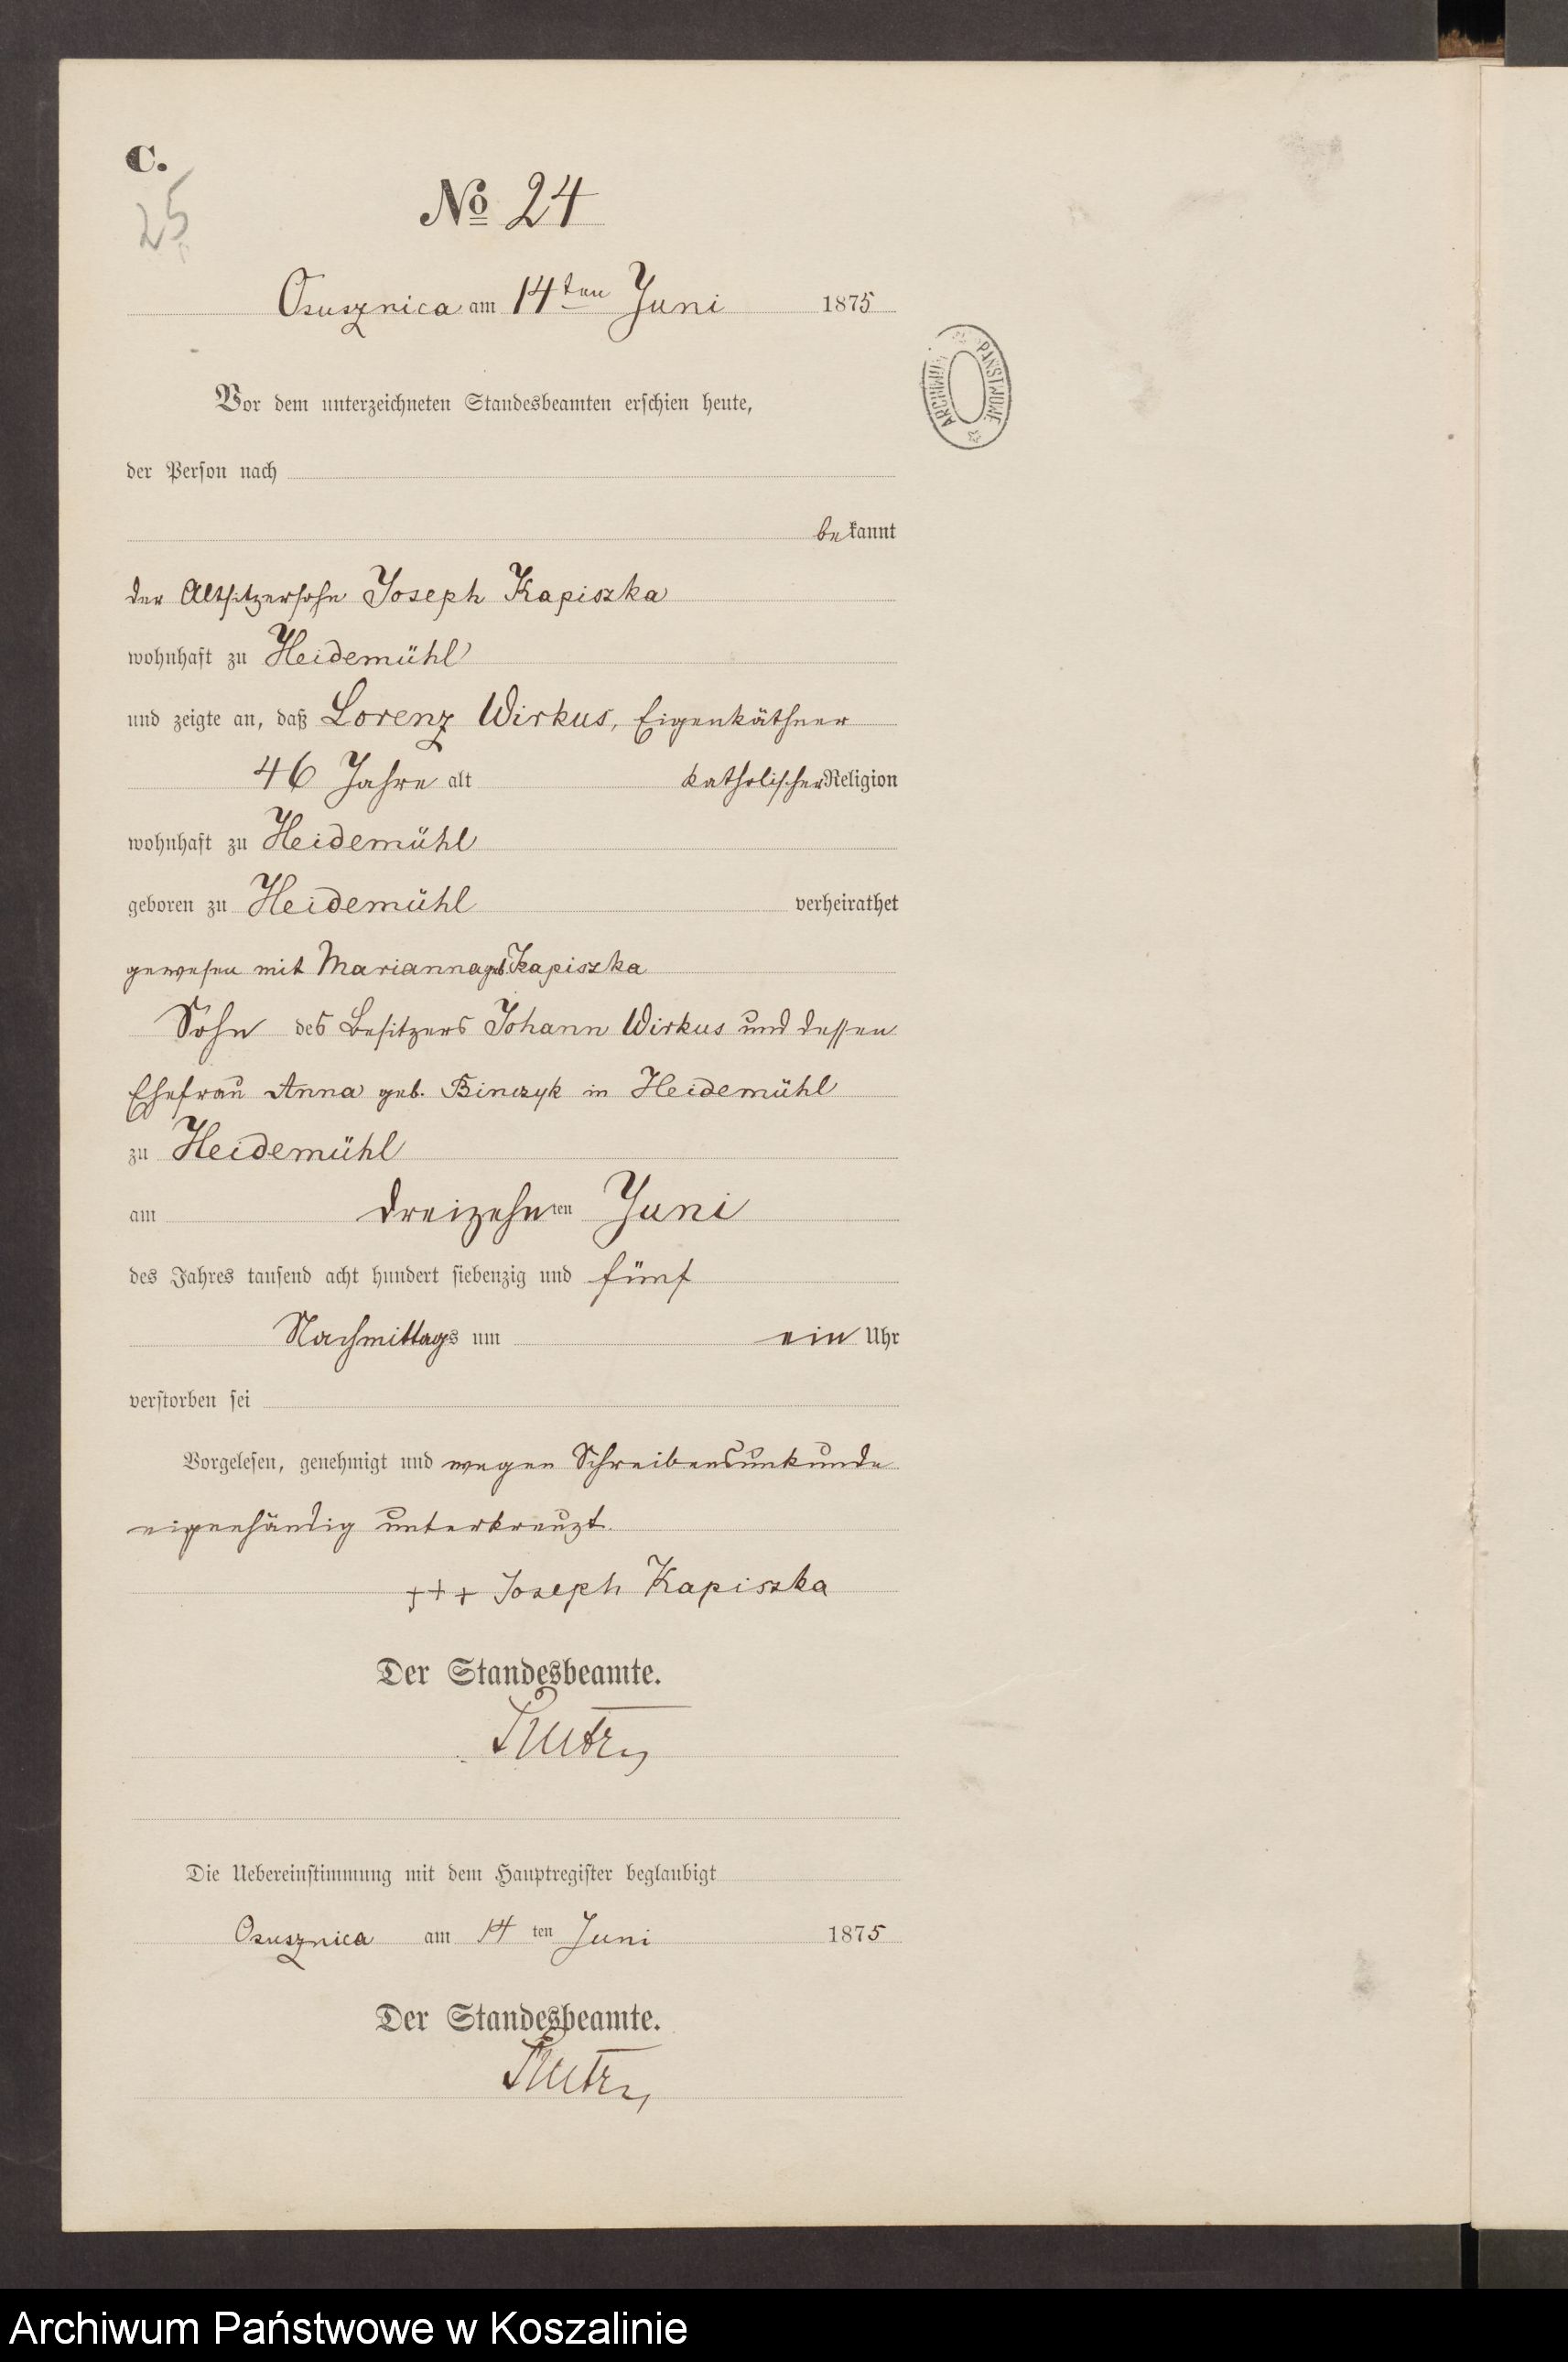 C.
25
No 24
Osusznica am 14ten Juni 1875
ARCHIWUM PAŃSTWOWE
Vor dem unterzeichneten Standesbeamten erschien heute,
der Person nach
bekannt
der Altsitzersohn Joseph Kapiszka
wohnhaft zu Heidemühl
und zeigte an, daß Lorenz Wirkus, Eigenkäthner
46 Jahre alt katholischer Religion
wohnhaft zu Heidemühl
geboren zu Heidemühl verheirathet
gewesen mit Marianna geb. Kapiszka
Sohn des Besitzers Johann Wirkus und dessen
Ehefrau Anna geb. Binczyk in Heidemühl
zu Heidemühl
am dreizehnten Juni
des Jahres tausend acht hundert siebenzig und fünf
Nachmittags um ein Uhr
verstorben sei
Vorgelesen, genehmigt und wegen Schreibensunkunde
eigenhändig unterkreuzt.
+++ Joseph Kapiszka
Der Standesbeamte.
Die Uebereinstimmung mit dem Hauptregister beglaubigt
Osusznica am 14 ten Juni 1875
Der Standesbeamte.
Archiwum Państwowe w Koszalinie